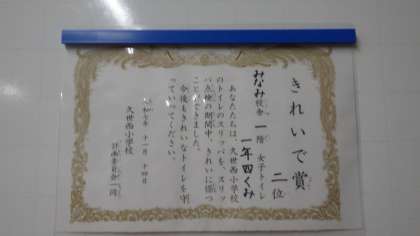 きれいで賞
二位
みなみ校舎 一階 女子トイレ
一年四くみ
あなたたちは、久世西小学校
のトイレのスリッパを、スリッ
パ点検の期間中、きれいに保つ
ことができました。
今後もきれいなトイレを守
っていってください。
令和七年 十一月 十四日
久世西小学校
計画委員会一同